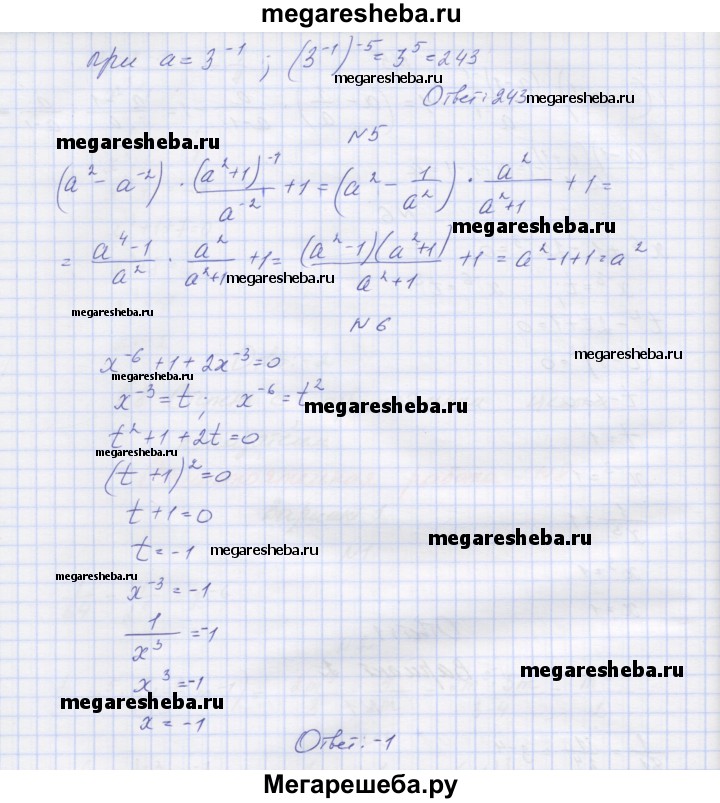 megaresheba.ru
при a = 3⁻¹ ; (3⁻¹)⁻⁵ = 3⁵ = 243
megaresheba.ru
Ответ: 243 megaresheba.ru
megaresheba.ru
N5
(a² - a⁻²) · (a²+1)⁻¹/a⁻² + 1 = (a² - 1/a²) · a²/(a²+1) + 1 =
megaresheba.ru
= (a⁴-1)/a² · a²/(a²+1) + 1 = (a²-1)(a²+1)/(a²+1) + 1 = a²-1+1 = a²
megaresheba.ru
megaresheba.ru
N6
megaresheba.ru
x⁻⁶ + 1 + 2x⁻³ = 0
megaresheba.ru
x⁻³ = t ; x⁻⁶ = t²
megaresheba.ru
t² + 1 + 2t = 0
megaresheba.ru
(t + 1)² = 0
t + 1 = 0
megaresheba.ru
t = -1 megaresheba.ru
megaresheba.ru
x⁻³ = -1
1/x³ = -1
megaresheba.ru
x³ = -1
megaresheba.ru
x = -1
Ответ: -1
Мегарешеба.ру